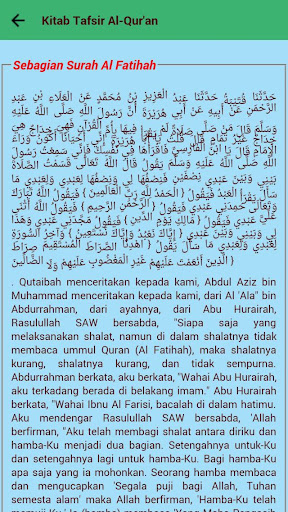 Kitab Tafsir Al-Qur'an
Sebagian Surah Al Fatihah
حَدَّثَنَا قُتَيْبَةُ حَدَّثَنَا عَبْدُ الْعَزِيزِ بْنُ مُحَمَّدٍ عَنْ الْعَلَاءِ بْنِ عَبْدِ
الرَّحْمَنِ عَنْ أَبِيهِ عَنْ أَبِي هُرَيْرَةَ أَنَّ رَسُولَ اللَّهِ صَلَّى اللَّهُ عَلَيْهِ
وَسَلَّمَ قَالَ مَنْ صَلَّى صَلَاةً لَمْ يَقْرَأْ فِيهَا بِأُمِّ الْقُرْآنِ فَهِيَ خِدَاجٌ هِيَ
خِدَاجٌ غَيْرُ تَمَامٍ قَالَ قُلْتُ يَا أَبَا هُرَيْرَةَ إِنِّي أَحْيَانًا أَكُونُ وَرَاءَ
الْإِمَامِ قَالَ يَا ابْنَ الْفَارِسِيِّ فَاقْرَأْهَا فِي نَفْسِكَ فَإِنِّي سَمِعْتُ رَسُولَ
اللَّهِ صَلَّى اللَّهُ عَلَيْهِ وَسَلَّمَ يَقُولُ قَالَ اللَّهُ تَعَالَى قَسَمْتُ الصَّلَاةَ
بَيْنِي وَبَيْنَ عَبْدِي نِصْفَيْنِ فَنِصْفُهَا لِي وَنِصْفُهَا لِعَبْدِي وَلِعَبْدِي مَا
سَأَلَ يَقْرَأُ الْعَبْدُ فَيَقُولُ { الْحَمْدُ لِلَّهِ رَبِّ الْعَالَمِينَ } فَيَقُولُ اللَّهُ تَبَارَكَ
وَتَعَالَى حَمِدَنِي عَبْدِي فَيَقُولُ { الرَّحْمَنِ الرَّحِيمِ } فَيَقُولُ اللَّهُ أَثْنَى
عَلَيَّ عَبْدِي فَيَقُولُ { مَالِكِ يَوْمِ الدِّينِ } فَيَقُولُ مَجَّدَنِي عَبْدِي وَهَذَا
لِي وَبَيْنِي وَبَيْنَ عَبْدِي { إِيَّاكَ نَعْبُدُ وَإِيَّاكَ نَسْتَعِينُ } وَآخِرُ السُّورَةِ
لِعَبْدِي وَلِعَبْدِي مَا سَأَلَ يَقُولُ { اهْدِنَا الصِّرَاطَ الْمُسْتَقِيمَ صِرَاطَ
{ الَّذِينَ أَنْعَمْتَ عَلَيْهِمْ غَيْرِ الْمَغْضُوبِ عَلَيْهِمْ وَلَا الضَّالِّينَ
. Qutaibah menceritakan kepada kami, Abdul Aziz bin
Muhammad menceritakan kepada kami, dari Al 'Ala" bin
Abdurrahman, dari ayahnya, dari Abu Hurairah,
Rasulullah SAW bersabda, "Siapa saja yang
melaksanakan shalat, namun di dalam shalatnya tidak
membaca ummul Quran (Al Fatihah), maka shalatnya
kurang, shalatnya kurang, dan tidak sempurna.
Abdurrahman berkata, aku berkata, "Wahai Abu Hurairah,
aku terkadang berada di belakang imam." Abu Hurairah
berkata, "Wahai Ibnu Al Farisi, bacalah di dalam hatimu.
Aku mendengar Rasulullah SAW bersabda, 'Allah
berfirman, "Aku telah membagi shalat antara diriku dan
hamba-Ku menjadi dua bagian. Setengahnya untuk-Ku
dan setengahnya lagi untuk hamba-Ku. Bagi hamba-Ku
apa saja yang ia mohonkan. Seorang hamba membaca
dan mengucapkan 'Segala puji bagi Allah, Tuhan
semesta alam' maka Allah berfirman, 'Hamba-Ku telah